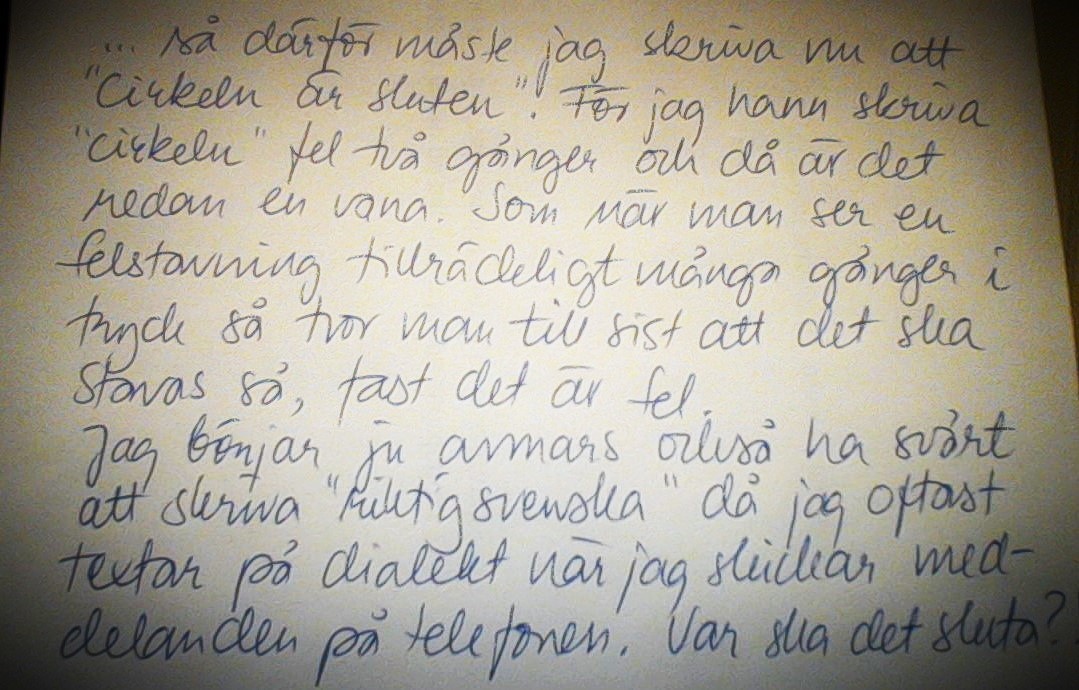 ... så därför måste jag skriva nu att
"Cirkeln är sluten"! För jag hann skriva
"cirkeln" fel två gånger och då är det
redan en vana. Som när man ser en
felstavning tillräckligt många gånger i
tryck så tror man till sist att det ska
stavas så, fast det är fel.
Jag börjar ju annars också ha svårt
att skriva "riktig svenska" då jag oftast
textar på dialekt när jag skickar med-
delanden på telefonen. Var ska det sluta?